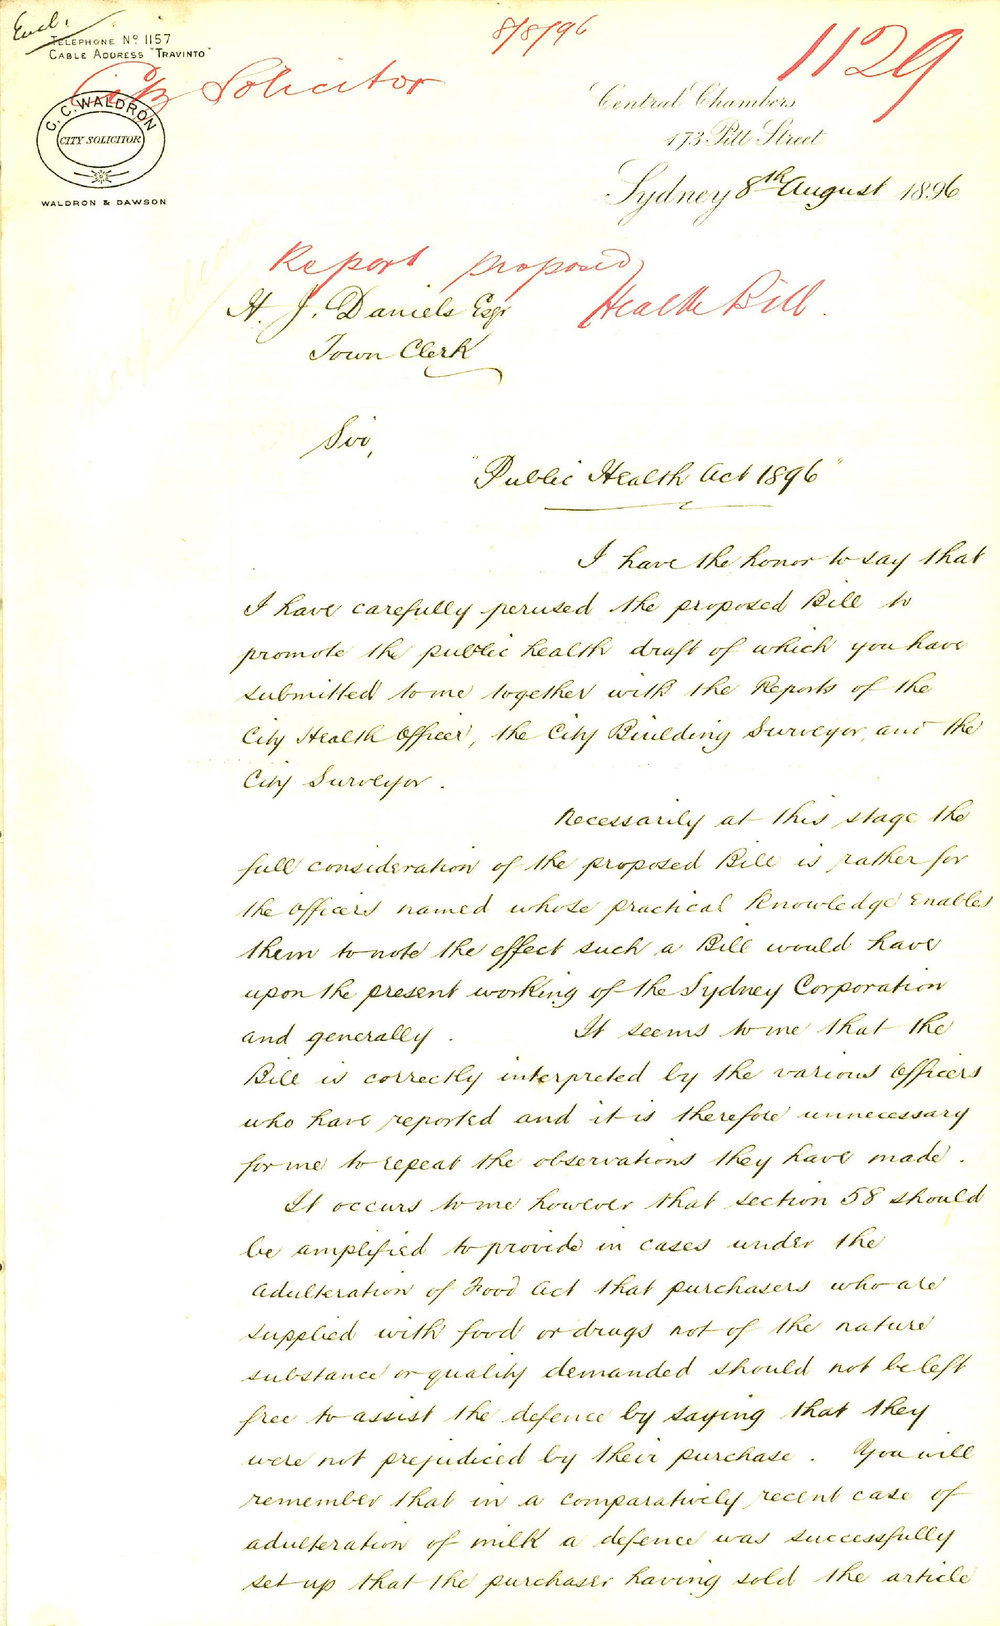 Encl.
8/8/96
1129
TELEPHONE No 1157
CABLE ADDRESS "TRAVINTO"
City Solicitor
C. C. WALDRON
CITY SOLICITOR
WALDRON & DAWSON
Central Chambers
473 Pitt Street
Sydney 8th August 1896
Report proposed
Health Bill.
H. J. Daniels Esqr
Town Clerk
Sir,
"Public Health Act 1896"
I have the honor to say that
I have carefully perused the proposed Bill to
promote the public health draft of which you have
submitted to me together with the Reports of the
City Health Officer, the City Building Surveyor, and the
City Surveyor.
Necessarily at this stage the
full consideration of the proposed Bill is rather for
the officers named whose practical knowledge enables
them to note the effect such a Bill would have
upon the present working of the Sydney Corporation
and generally. It seems to me that the
Bill is correctly interpreted by the various Officers
who have reported and it is therefore unnecessary
for me to repeat the observations they have made.
It occurs to me however that section 58 should
be amplified to provide in cases under the
Adulteration of Food Act that purchasers who are
supplied with food or drugs not of the nature
substance or quality demanded should not be left
free to assist the defence by saying that they
were not prejudiced by their purchase. You will
remember that in a comparatively recent case of
adulteration of milk a defence was successfully
set up that the purchaser having sold the article